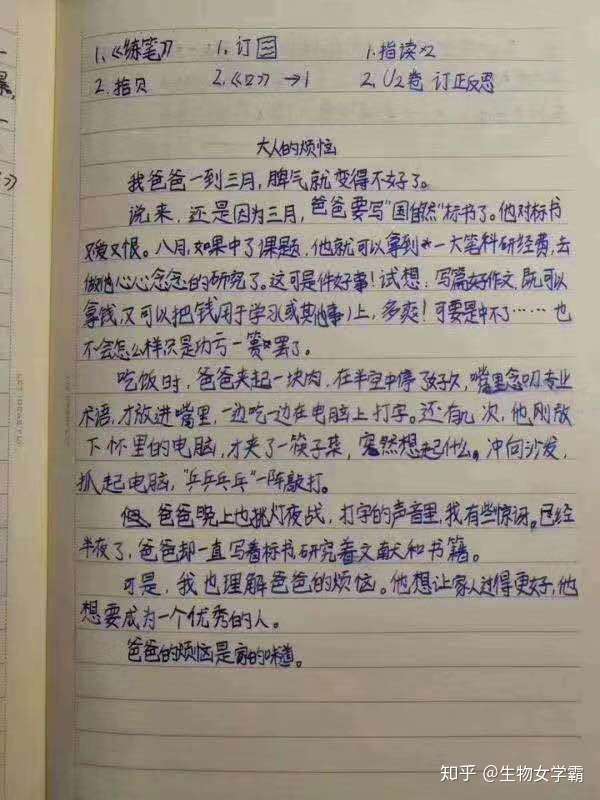 1.《练笔》 1.订 1.指读×2
2.指贝 2.《口》→1 2.U2卷 订正反思
大人的烦恼
我爸爸一到三月,脾气就变得不好了。
说来,还是因为三月,爸爸要写"国自然"标书了。他对标书
又爱又恨。八月,如果中了课题,他就可以拿到一大笔科研经费,去
做他心心念念的研究了。这可是件好事!试想,写篇好作文,既可以
拿钱,又可以把钱用于学习(或其他事)上,多爽!可要是中不了……也
不会怎么样只是功亏一篑罢了。
吃饭时,爸爸夹起一块肉,在半空中停了好久,嘴里念叨专业
术语,才放进嘴里,一边吃一边在电脑上打字。还有几次,他刚放
下怀里的电脑,才夹了一筷子菜,突然想起什么。冲向沙发,
抓起电脑,"乒乒乓乓"一阵敲打。
爸爸晚上也挑灯夜战,打字的声音里,我有些惊讶。已经
半夜了,爸爸却一直写着标书研究着文献和书籍。
可是,我也理解爸爸的烦恼。他想让家人过得更好,他
想要成为一个优秀的人。
爸爸的烦恼是家的味道。
知乎 @生物女学霸